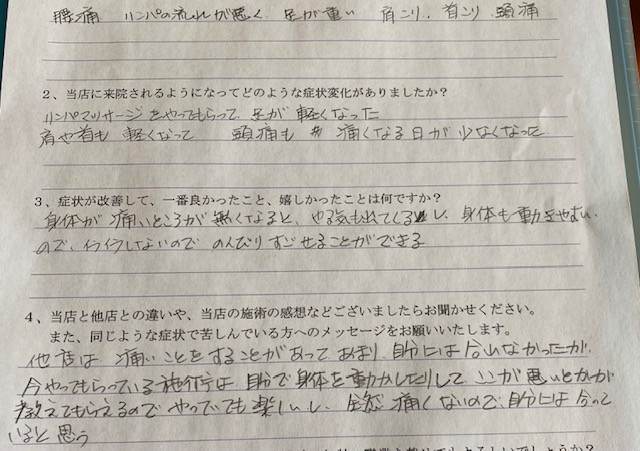 腰痛 リンパの流れが悪く、足が重い 肩こり、首こり、頭痛
2、当店に来院されるようになってどのような症状変化がありましたか?
リンパマッサージをやってもらって、足が軽くなった
肩や首も軽くなって 頭痛も 痛くなる日が少なくなった
3、症状が改善して、一番良かったこと、嬉しかったことは何ですか?
身体が痛いところが無くなると、やる気も出てくるし、身体も動きやすい
ので、イライラしないので のんびりすごせることができる
4、当店と他店との違いや、当店の施術の感想などございましたらお聞かせください。
また、同じような症状で苦しんでいる方へのメッセージをお願いいたします。
他店は 痛いことをすることがあって あまり、自分には合わなかったが、
今やってもらっている施術は、自分で身体を動かしたりして、ここが悪いとかが
教えてもらえるので やっていても楽しいし、全然 痛くないので、自分には合って
いると思う